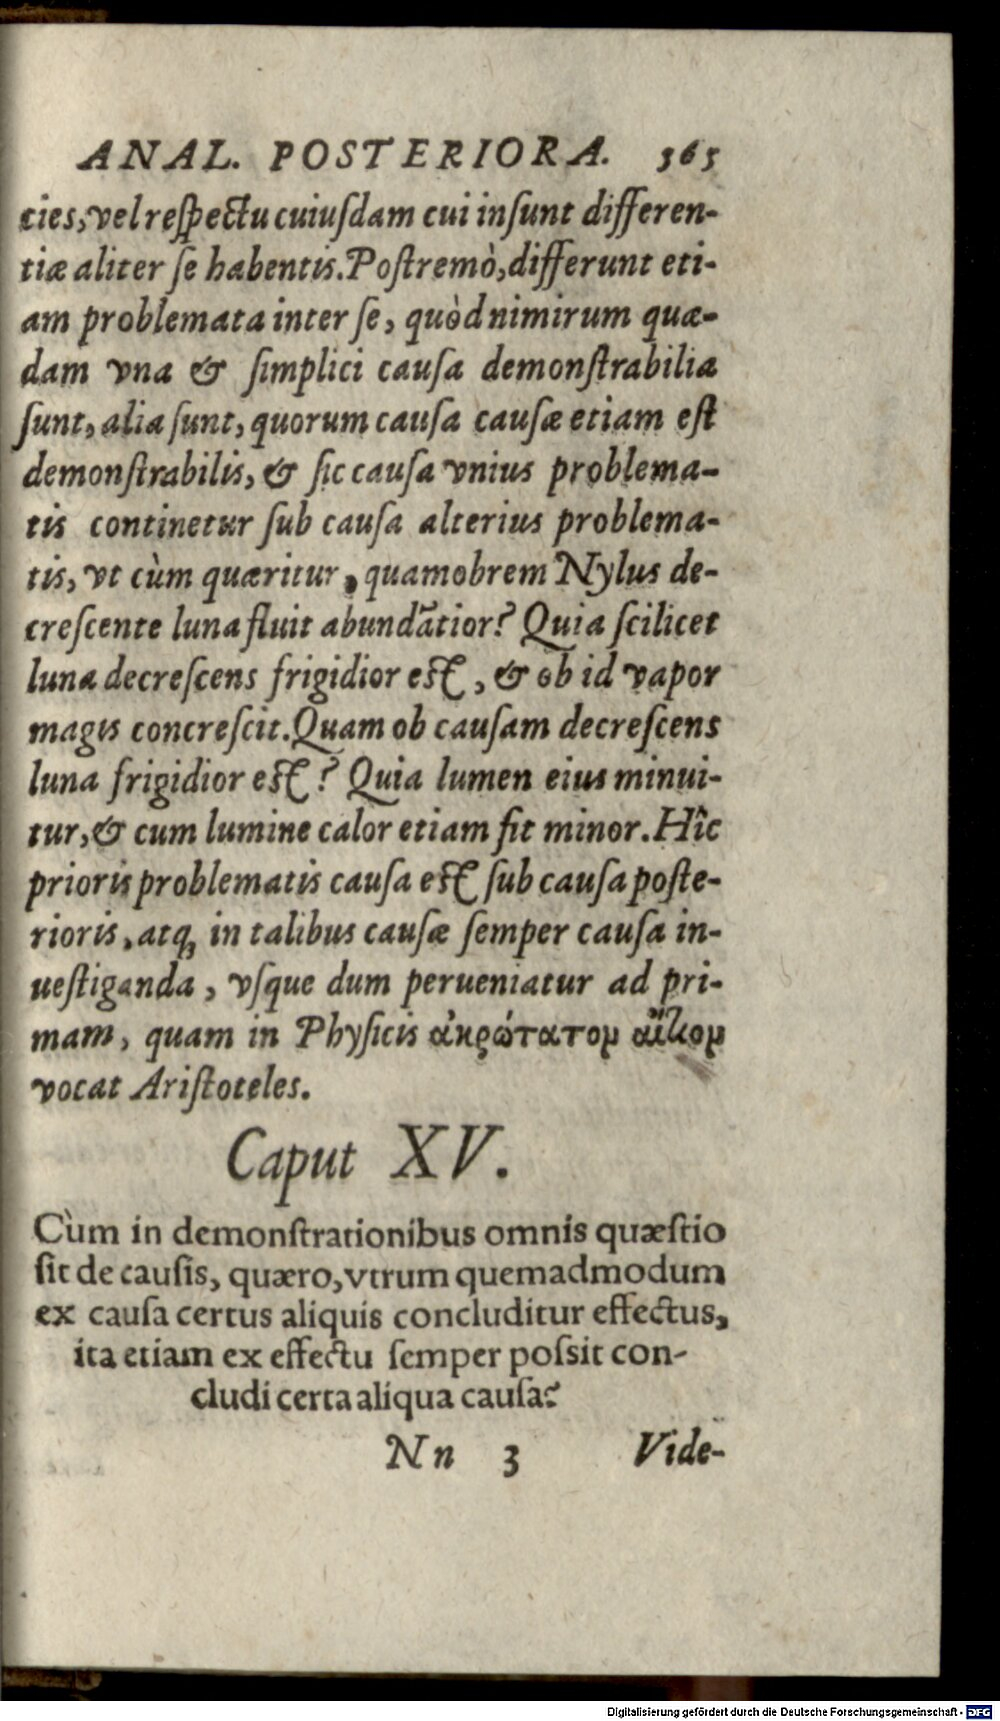 ANAL. POSTERIORA. 565
cies, vel respectu cuiusdam cui insunt differen-
tiæ aliter se habentis. Postremò, differunt eti-
am problemata inter se, quòd nimirum quæ-
dam vna & simplici causa demonstrabilia
sunt, alia sunt, quorum causa causæ etiam est
demonstrabilis, & sic causa vnius problema-
tis continetur sub causa alterius problema-
tis, vt cùm quæritur, quamobrem Nylus de-
crescente luna fluit abundãtior? Quia scilicet
luna decrescens frigidior est, & ob id vapor
magis concrescit. Quam ob causam decrescens
luna frigidior est? Quia lumen eius minui-
tur, & cum lumine calor etiam fit minor. Hîc
prioris problematis causa est sub causa poste-
rioris, atq; in talibus causæ semper causa in-
uestiganda, vsque dum perueniatur ad pri-
mam, quam in Physicis ἀκρώτατον αἴτιον
vocat Aristoteles.
Caput XV.
Cùm in demonstrationibus omnis quæstio
sit de causis, quæro, vtrum quemadmodum
ex causa certus aliquis concluditur effectus,
ita etiam ex effectu semper possit con-
cludi certa aliqua causa?
Nn 3 Vide-
Digitalisierung gefördert durch die Deutsche Forschungsgemeinschaft - DFG